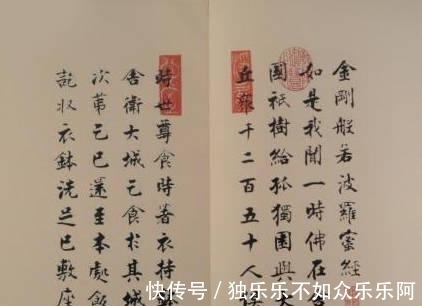 金剛般若波羅蜜經
如是我聞一時佛在
國祇樹給孤獨園與大
丘眾千二百五十人
時世尊食時著衣持
舍衛大城乞食於其城
次第乞已還至本處飯
訖收衣鉢洗足已敷座
快传号 / 独乐乐不如众乐乐阿